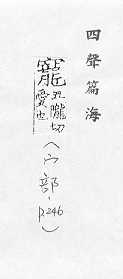 四聲篇海
寵丑隴切
愛也
(宀部.p246)